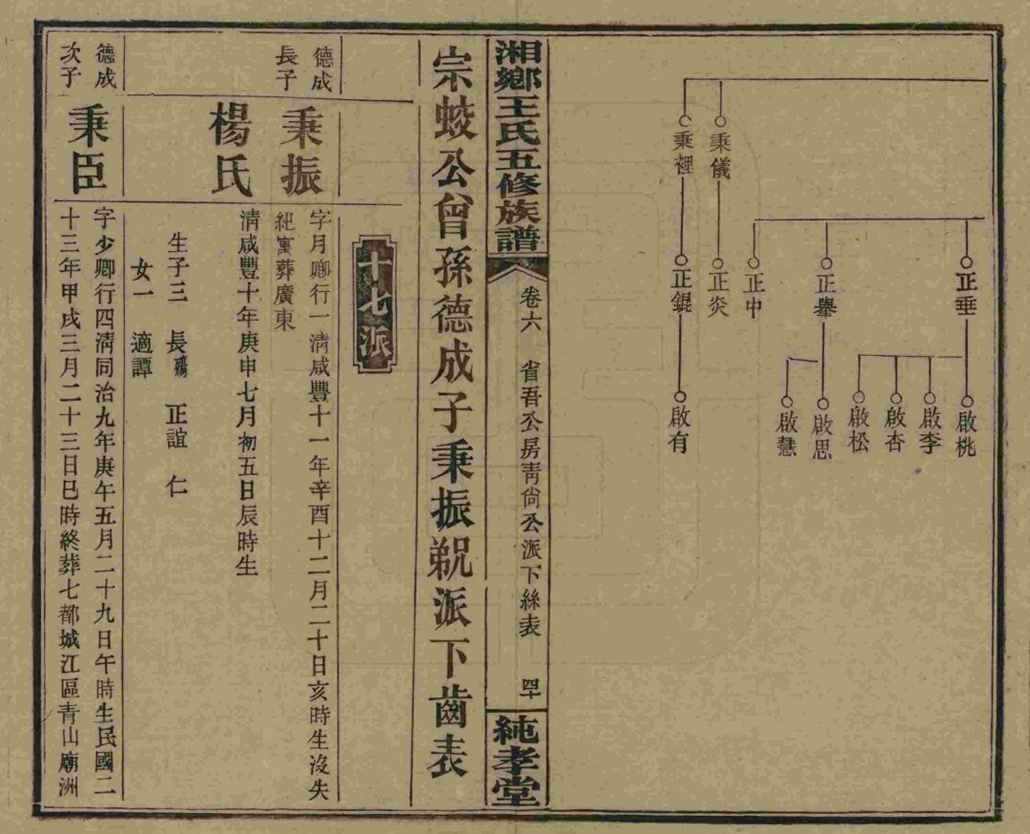 秉儀
秉裡
正垂
正舉
正中
正炎
正錕
啟桃
啟李
啟杏
啟松
啟思
啟慧
啟有
湘鄉王氏五修族譜
卷六
省吾公房靑尙公派下絲表
四十
純孝堂
宗蛟公曾孫德成子秉振派下齒表
十七派
德成
長子
秉振
字月卿行一清咸豐十一年辛酉十二月二十日亥時生沒失
紀寓葬廣東
楊氏
清咸豐十年庚申七月初五日辰時生
生子三 長殤 正誼 仁
女一 適譚
德成
次子
秉臣
字少卿行四清同治九年庚午五月二十九日午時生民國二
十三年甲戌三月二十三日巳時終葬七都城江區青山廟洲